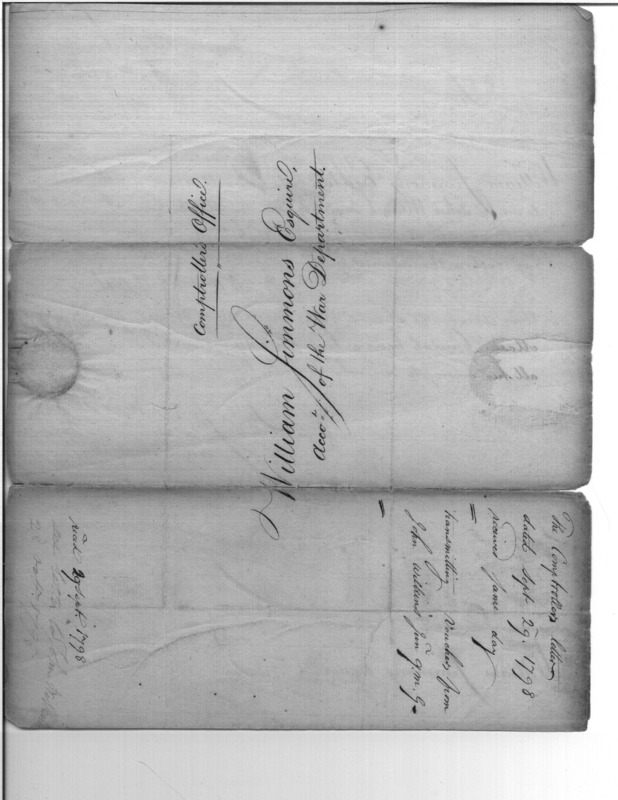 Comptrollers Office.
William Simmons Esquire,
Accot. of the War Department.
The Comptrollers letter
dated Sept. 29. 1798
received same day
transmitting Vouchers from
John Wilkins Junr. Q.M.G.
recd. 29 Sept. 1798